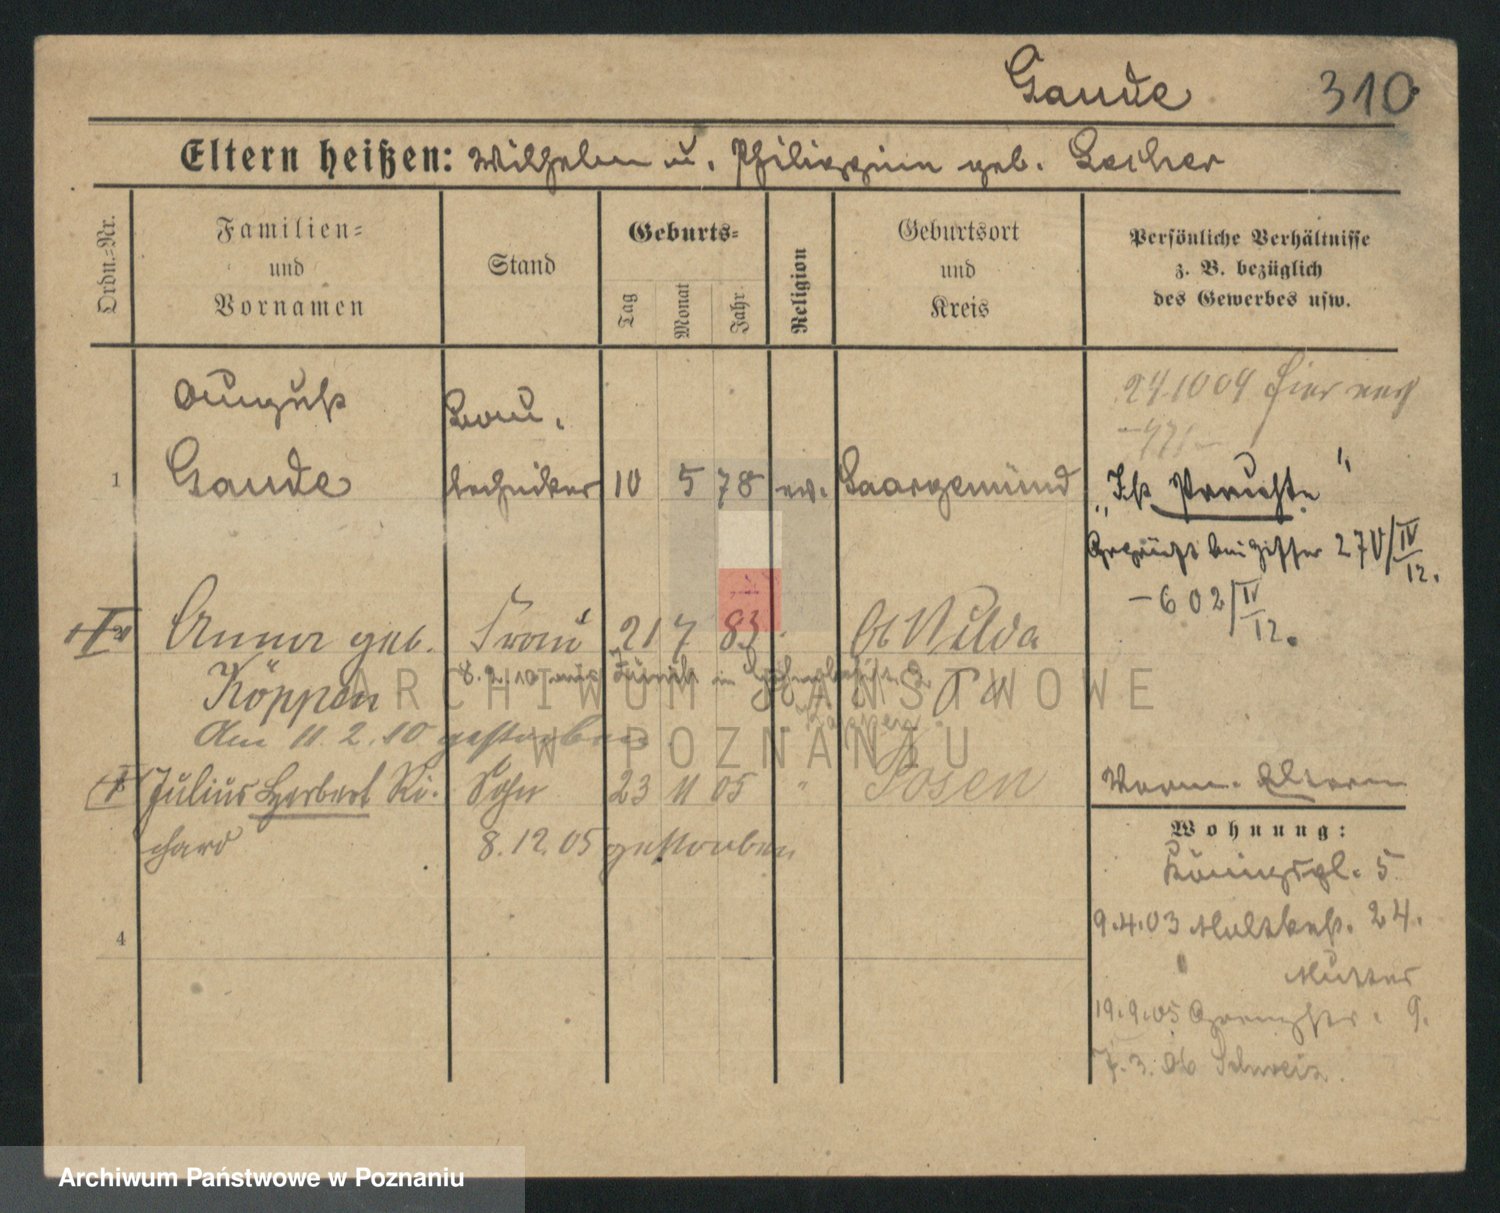 Gaude 310
Eltern heißen: Wilhelm u. Philippine geb. Locher
Ordn.-Nr.
Familien-
und
Vornamen
Stand
Geburts-
Tag
Monat
Jahr
Religion
Geburtsort
und
Kreis
Persönliche Verhältnisse
z. B. bezüglich
des Gewerbes usw.
24 10 04 hier
August Bau.
1 Gaude techniker 10 5 78 ev. Saargemünd
"Ist "
Ziffer 270/IV 12.
-602/IV 12.
Anna geb. Frau 21 7 83
Köppen 8.2.10 in
Am 11.2.10 gestorben
Julius Herbert Ri- Sohn 23 11 05 " Posen
chard 8.12.05 gestorben
Verm. Eltern
Wohnung:
Königspl. 5
9.4.03 Moltkestr. 24.
Mutter
4
19.9.05 9.
7.3.06 Schweiz.
ARCHIWUM PAŃSTWOWE
W POZNANIU
Archiwum Państwowe w Poznaniu